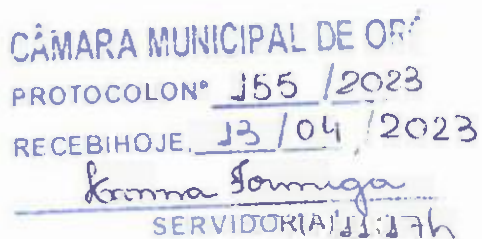 CÂMARA MUNICIPAL DE OR
PROTOCOLO Nº 155 / 2023
RECEBI HOJE, 13 / 04 / 2023
Formiga
SERVIDOR(A) 11:17h